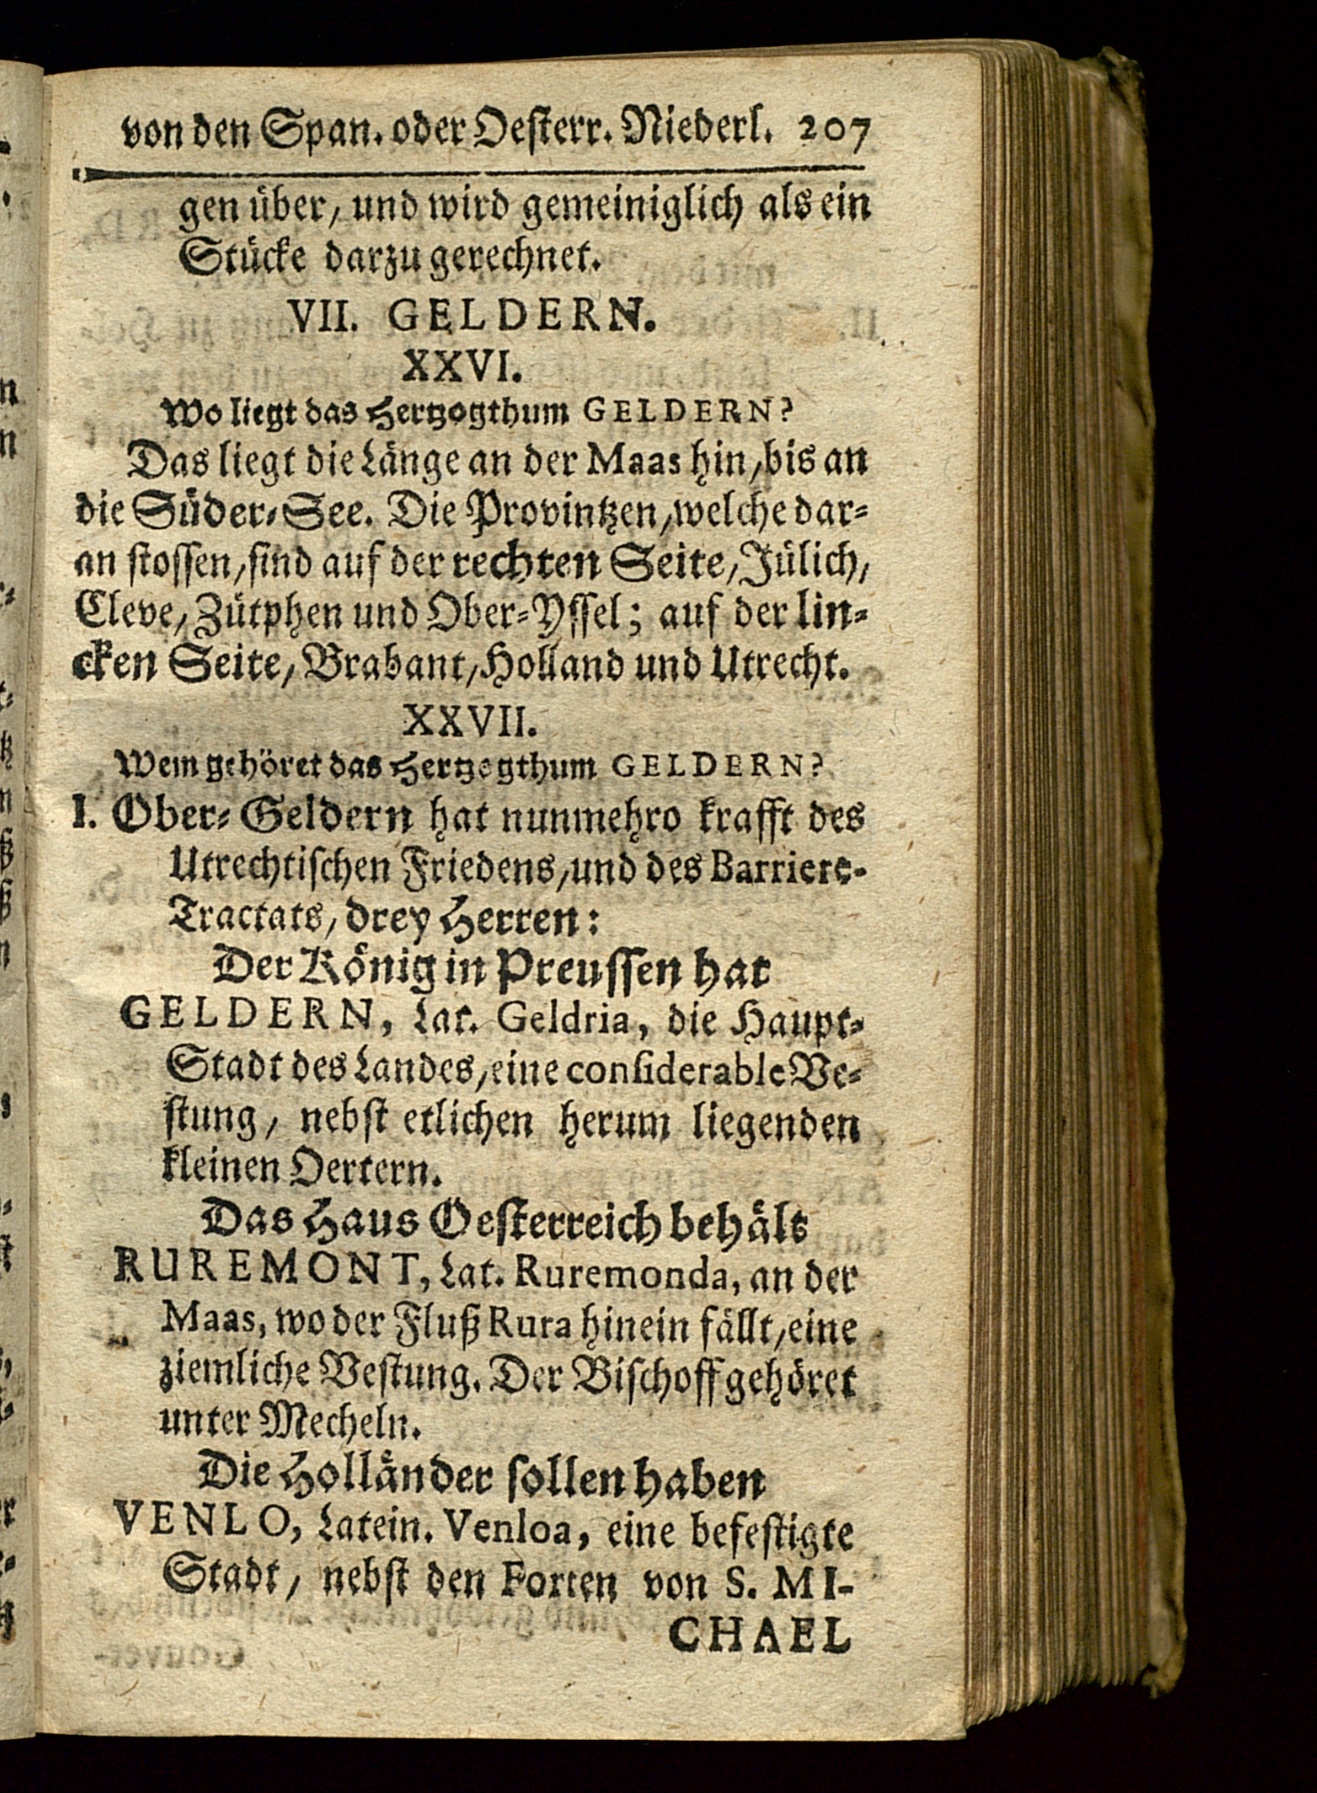 von den Span. oder Oesterr. Niederl. 207
gen über, und wird gemeiniglich als ein
Stücke darzu gerechnet.
VII. GELDERN.
XXVI.
Wo liegt das Hertzogthum GELDERN?
Das liegt die Länge an der Maas hin, bis an
die Süder-See. Die Provintzen, welche dar-
an stossen, sind auf der rechten Seite, Jülich,
Cleve, Zütphen und Ober-Yssel; auf der lin-
cken Seite, Brabant, Holland und Utrecht.
XXVII.
Wem gehöret das Hertzogthum GELDERN?
I. Ober-Geldern hat nunmehro krafft des
Utrechtischen Friedens, und des Barriere-
Tractats, drey Herren:
Der König in Preussen hat
GELDERN, Lat. Geldria, die Haupt-
Stadt des Landes, eine considerable Ve-
stung, nebst etlichen herum liegenden
kleinen Oertern.
Das Haus Oesterreich behält
RUREMONT, Lat. Ruremonda, an der
Maas, wo der Fluß Rura hinein fällt, eine
ziemliche Vestung. Der Bischoff gehöret
unter Mecheln.
Die Holländer sollen haben
VENLO, Latein. Venloa, eine befestigte
Stadt, nebst den Forten von S. MI-
CHAEL